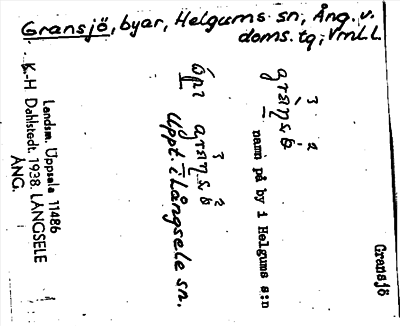 Gransjö, byar, Helgums sn, Ång. v.
doms. tg; Vml. L.
Gransjö
namn på by i Helgums s:n
Uppt. i Långsele sn.
Landsm. Uppsala 11486
K.-H Dahlstedt. 1938. LÅNGSELE
ÅNG.